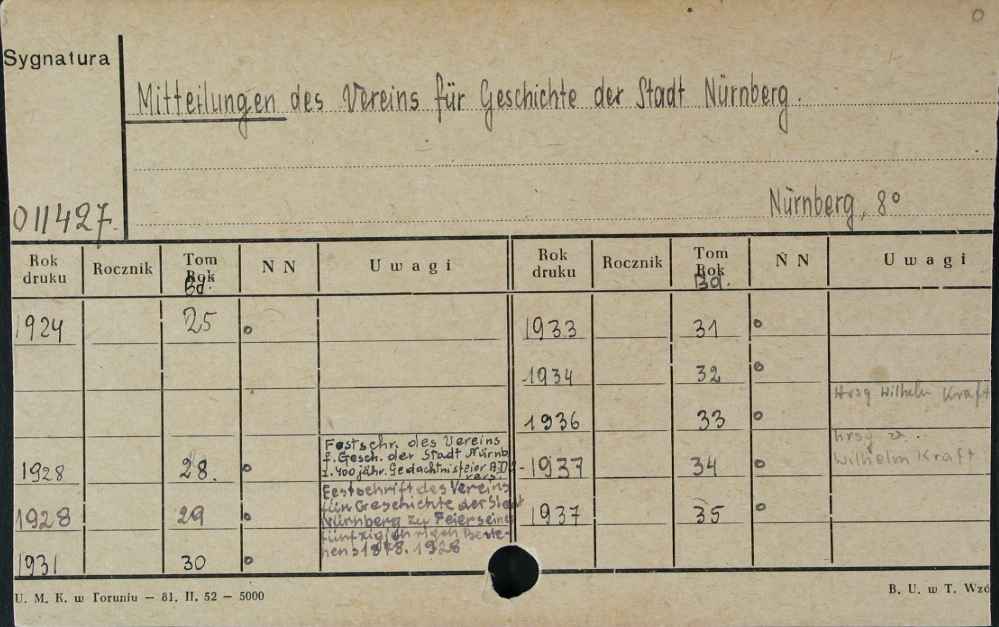 Sygnatura
Mitteilungen des Vereins für Geschichte der Stadt Nürnberg.
Nürnberg, 8°
011427.
Rok druku Rocznik Tom Rok Bd. N N Uwagi Rok druku Rocznik Tom Rok Bd. N N Uwagi
1924 25 o 1933 31 o
1934 32 o
Hrsg Wilhelm Kraft
1936 33 o
Festschr. des Vereins
f. Gesch. der Stadt Nürnb
z. 400 jähr. Gedächtnisfeier A.D.
1928 28. o 1937 34 o
hrsg v.
Wilhelm Kraft
Festschrift des Vereins
für Geschichte der Stadt
Nürnberg zu Feier seines
fünfzigjährigen Beste-
hens 1878. 1928
1928 29 o 1937 35 o
1931 30 o
U. M. K. w Toruniu — 81. II. 52 — 5000
B. U. w T. Wzó